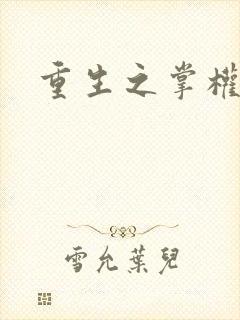 重生之掌權
雪允葉兒